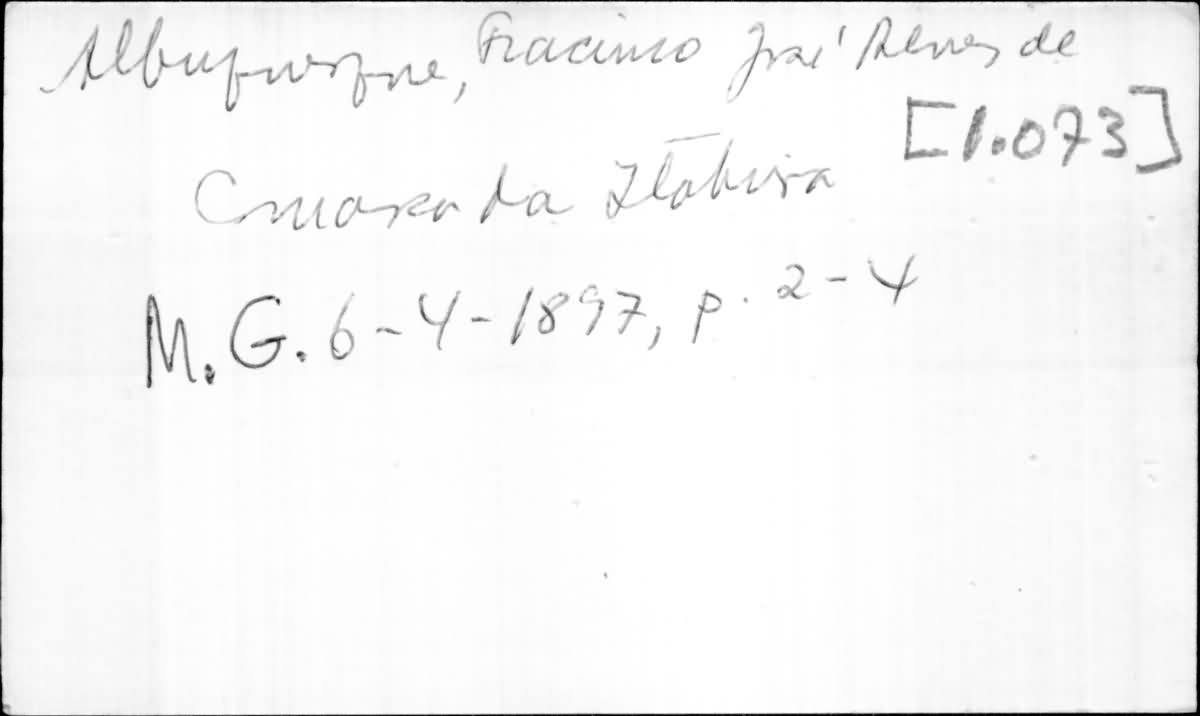 Albuquerque, Fracinco José Alves de
[1.073]
Comarca da Itabira
M.G. 6-4-1897, p. 2-4